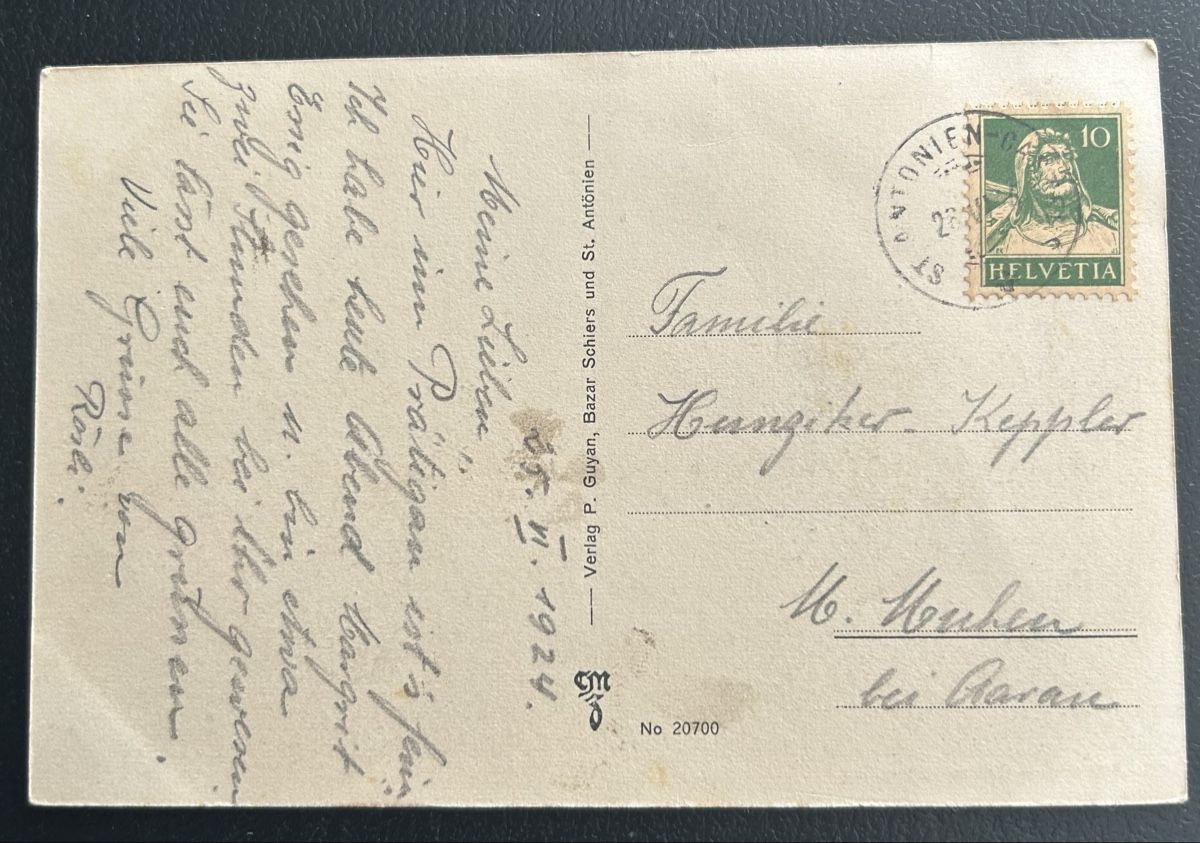 25. VI. 1924.
Meine Lieben!
Hier im Prätigau ist's fein
Ich habe heute Abend Margrit
Emig gesehen u. bin etwa
zwei Stunden bei ihr gewesen
Sie lässt euch alle grüssen.
Viele Grüsse von
Rösli.
— Verlag P. Guyan, Bazar Schiers und St. Antönien —
No 20700
ST. ANTONIEN
10
HELVETIA
Familie
Hunziker-Keppler
M. Muhen
bei Aarau